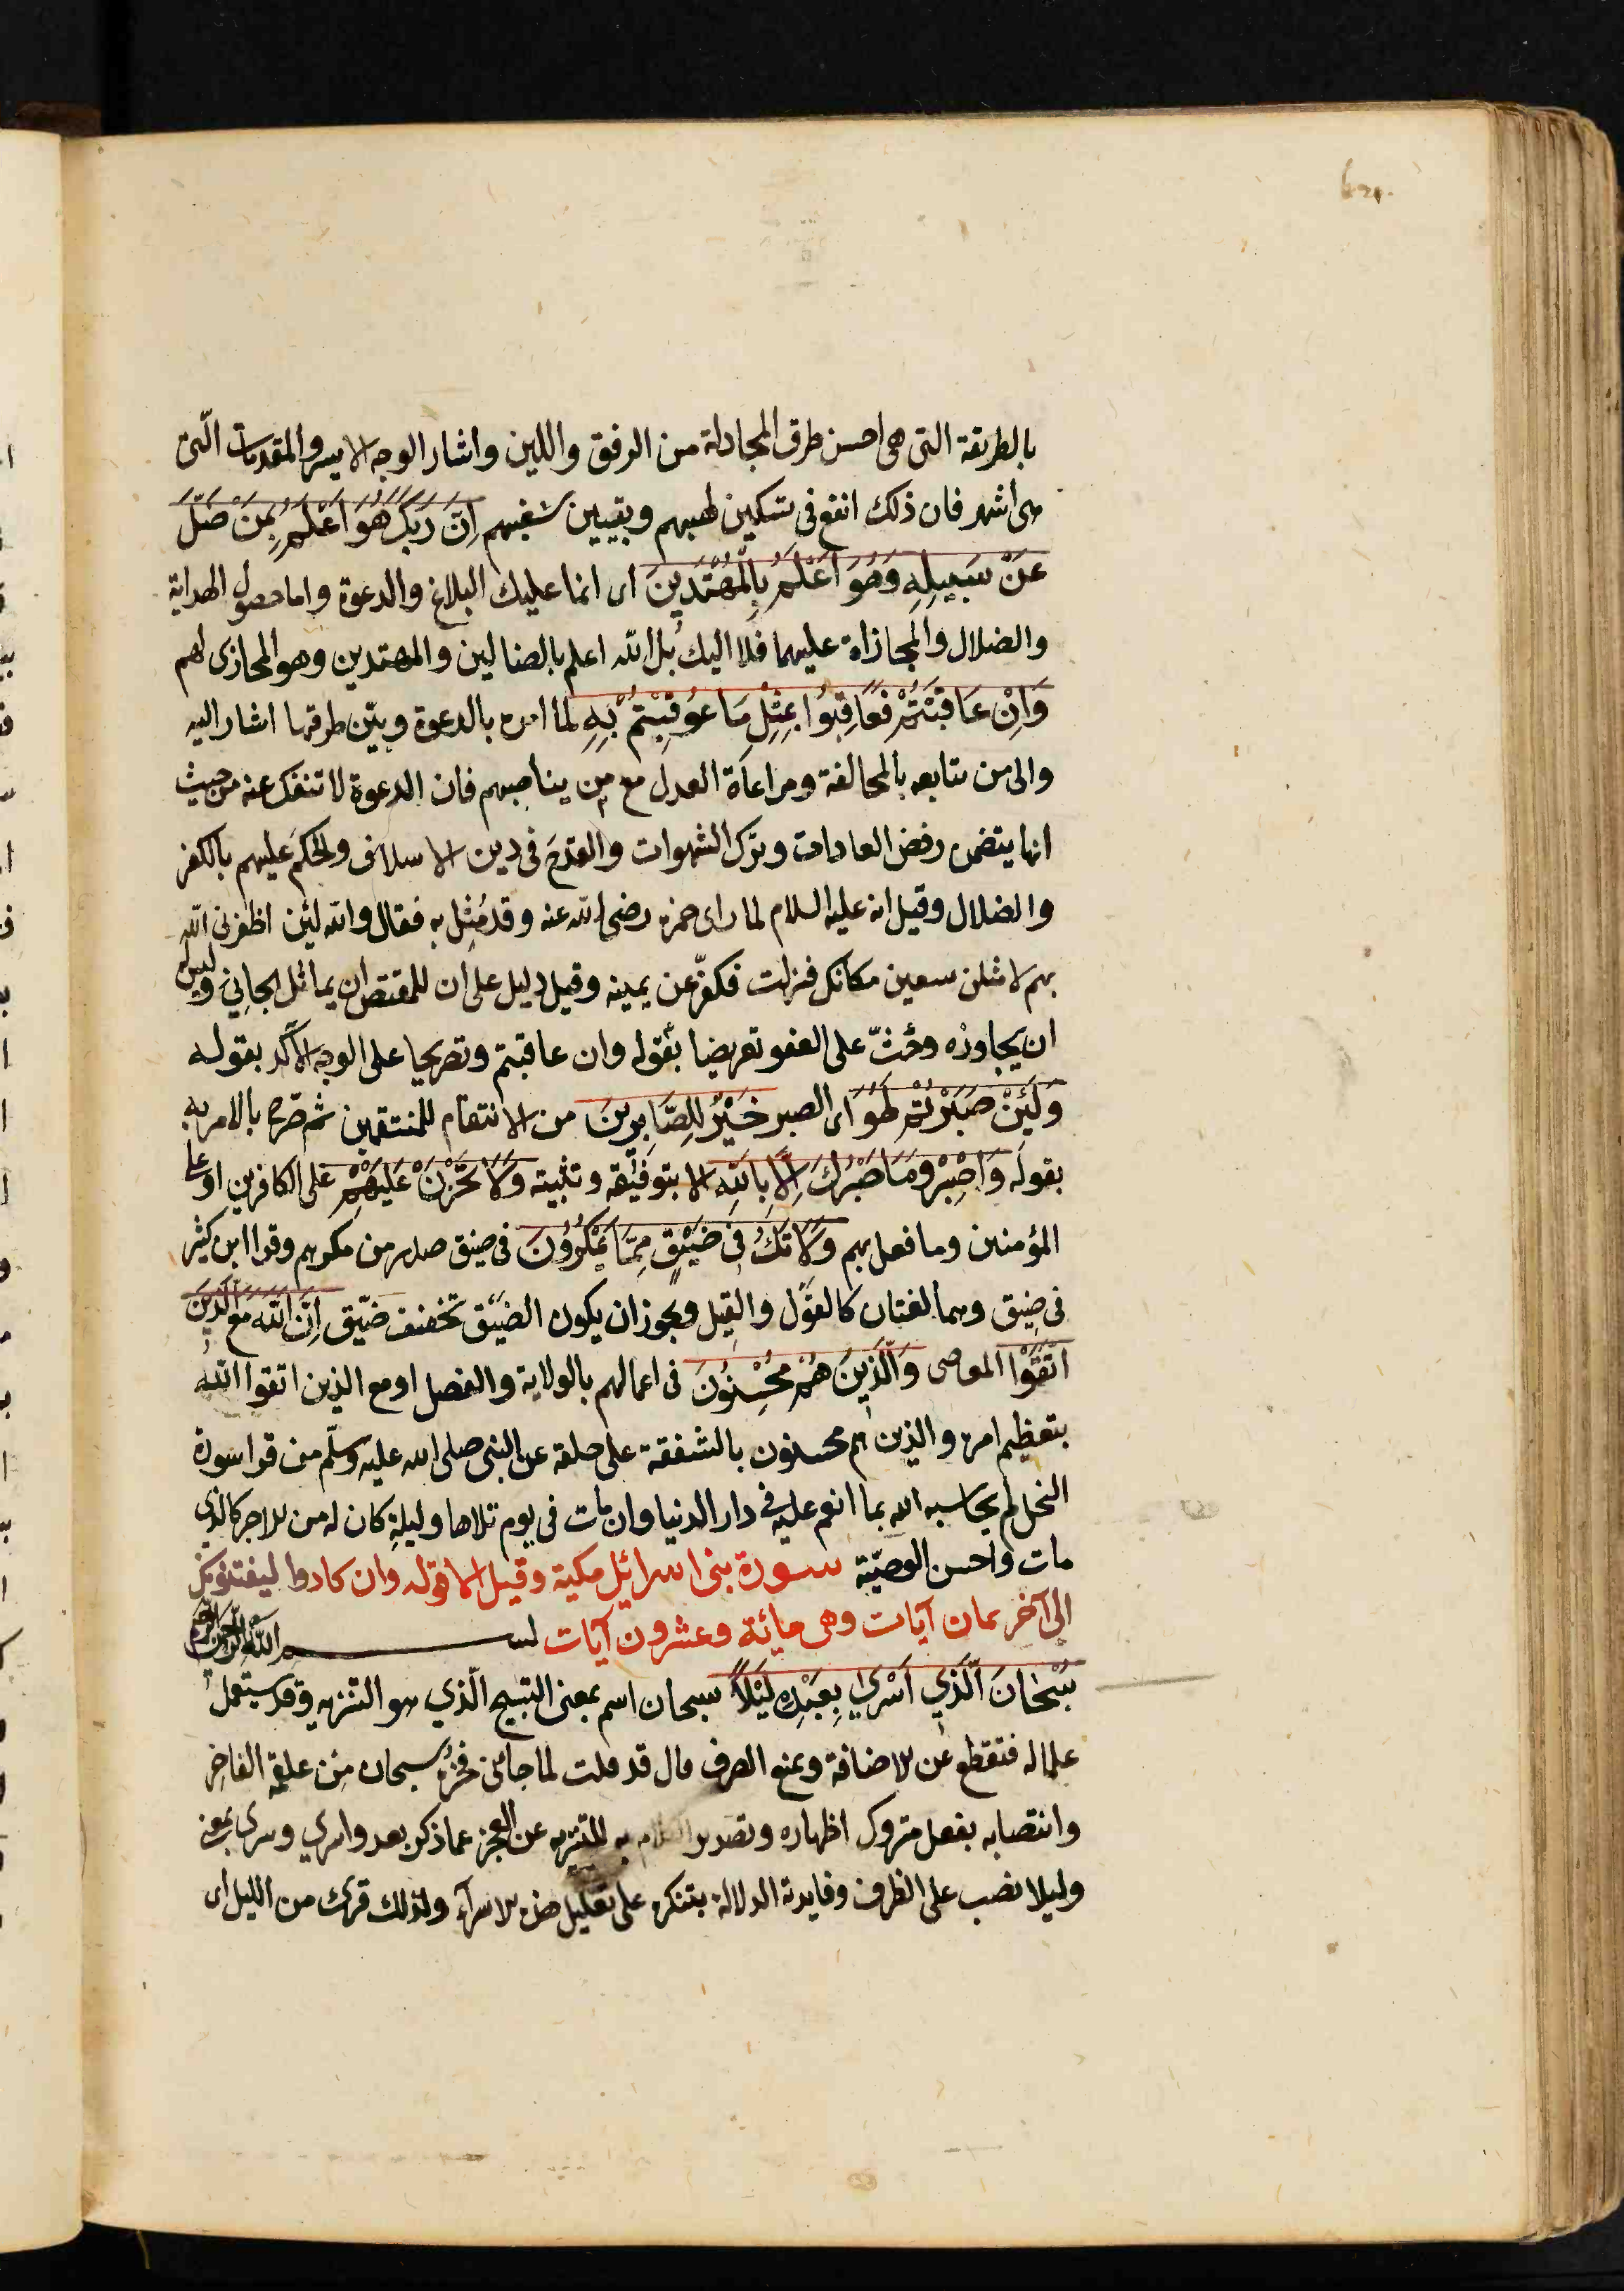 بالطريقة التى هى احسن طرق المجادلة من الرفق واللين واشار الوجه الايسر والمقدمات الّتى
هى اشهر فان ذلك انفع فى تسكين لهبهم وتبيين شغبهم اِنَّ رَبَّكَ هُوَ اَعْلَمُ بِمَنْ ضَلَّ
عَنْ سَبِيلِهِ وَهُوَ اَعْلَمُ بِالْمُهْتَدِينَ اى انما عليك البلاغ والدعوة واما حصول الهداية
والضلال والمجازاة عليهما فلا اليك بل الله اعلم بالضالين والمهتدين وهو المجازى لهم
وَاِنْ عَاقَبْتُمْ فَعَاقِبُوا بِمِثْلِ مَا عُوقِبْتُمْ بِهِ لما امره بالدعوة وبيّن طرقها اشار اليه
والى من يتابعه بالمخالفة ومراعاة العدل مع من يناصبهم فان الدعوة لا تنفك عنه من حيث
انها يتضمن رفض العادات وترك الشهوات والقدح فى دين الاسلاف والحكم عليهم بالكفر
والضلال وقيل انه عليه السلام لما راى حمزه رضى الله عنه وقد مُثِل به فقال والله لئن اظفرنى الله
بهم لامثلن سبعين مكانك فنزلت فكفّر عن يمينه وقيل دليل على ان للمقتص ان يماثل الجانى وليس له
ان يجاوزه وحُثّ على العفو تعريضا بقوله وان عاقبتم وتصريحا على الوجه الآكد بقوله
وَلَئِنْ صَبَرْتُمْ لَهُوَ اى الصبر خَيْرٌ لِلصَّابِرِينَ من الانتقام للمنتقمين ثم صرح بالامر به
بقوله وَاصْبِرْ وَمَا صَبْرُكَ اِلَّا بِاللهِ الا بتوفيقه وتثبيته وَلَا تَحْزَنْ عَلَيْهِمْ على الكافرين او على
المؤمنين وما فعل بهم وَلَا تَكُ فِى ضَيْقٍ مِمَّا يَمْكُرُونَ فى ضيق صدر من مكرهم وقرا ابن كثير
فى ضِيق وهما لغتان كالقَوْل والقِيل ويجوز ان يكون الضَيْق تخفيف ضيّق اِنَّ اللهَ مَعَ الَّذِينَ
اتَّقَوْا المعاصى وَالَّذِينَ هُمْ مُحْسِنُونَ فى اعمالهم بالولاية والفضل او مع الذين اتقوا الله
بتعظيم امره والذين هم محسنون بالشفقة على خلقه عن النبى صلى الله عليه وسلّم من قرا سورة
النحل لم يحاسبه الله بما انعم عليه فى دار الدنيا وان مات فى يوم تلاها وليلةٍ كان له من الاجر كالذى
مات واحسن الوصيّة سورة بنى اسرائيل مكية وقيل الا قوله وان كادوا ليفتنونك
الى آخر ثمان آيات وهى مائة وعشرون آيات بسم الله الرحمن الرحيم
سُبْحَانَ الَّذِي اَسْرَى بِعَبْدِهِ لَيْلًا سبحان اسم بمعنى التسبيح الّذي هو التنزيه وقد يستعمل
علما له فتقطع عن الاضافة ويمنع الصرف قال قد قلت لما جاءنى فخره سبحان من علقمة الفاخر
وانتصابه بفعل متروك اظهاره وتصدير الكلام به للتنزيه عن العجز عما ذكر بعد واسرى وسرى بمعنى
وليلا نصب على الظرف وفايدته الدلالة بتنكره على تقليل مدة الاسراء ولذلك قرئ من الليل اى